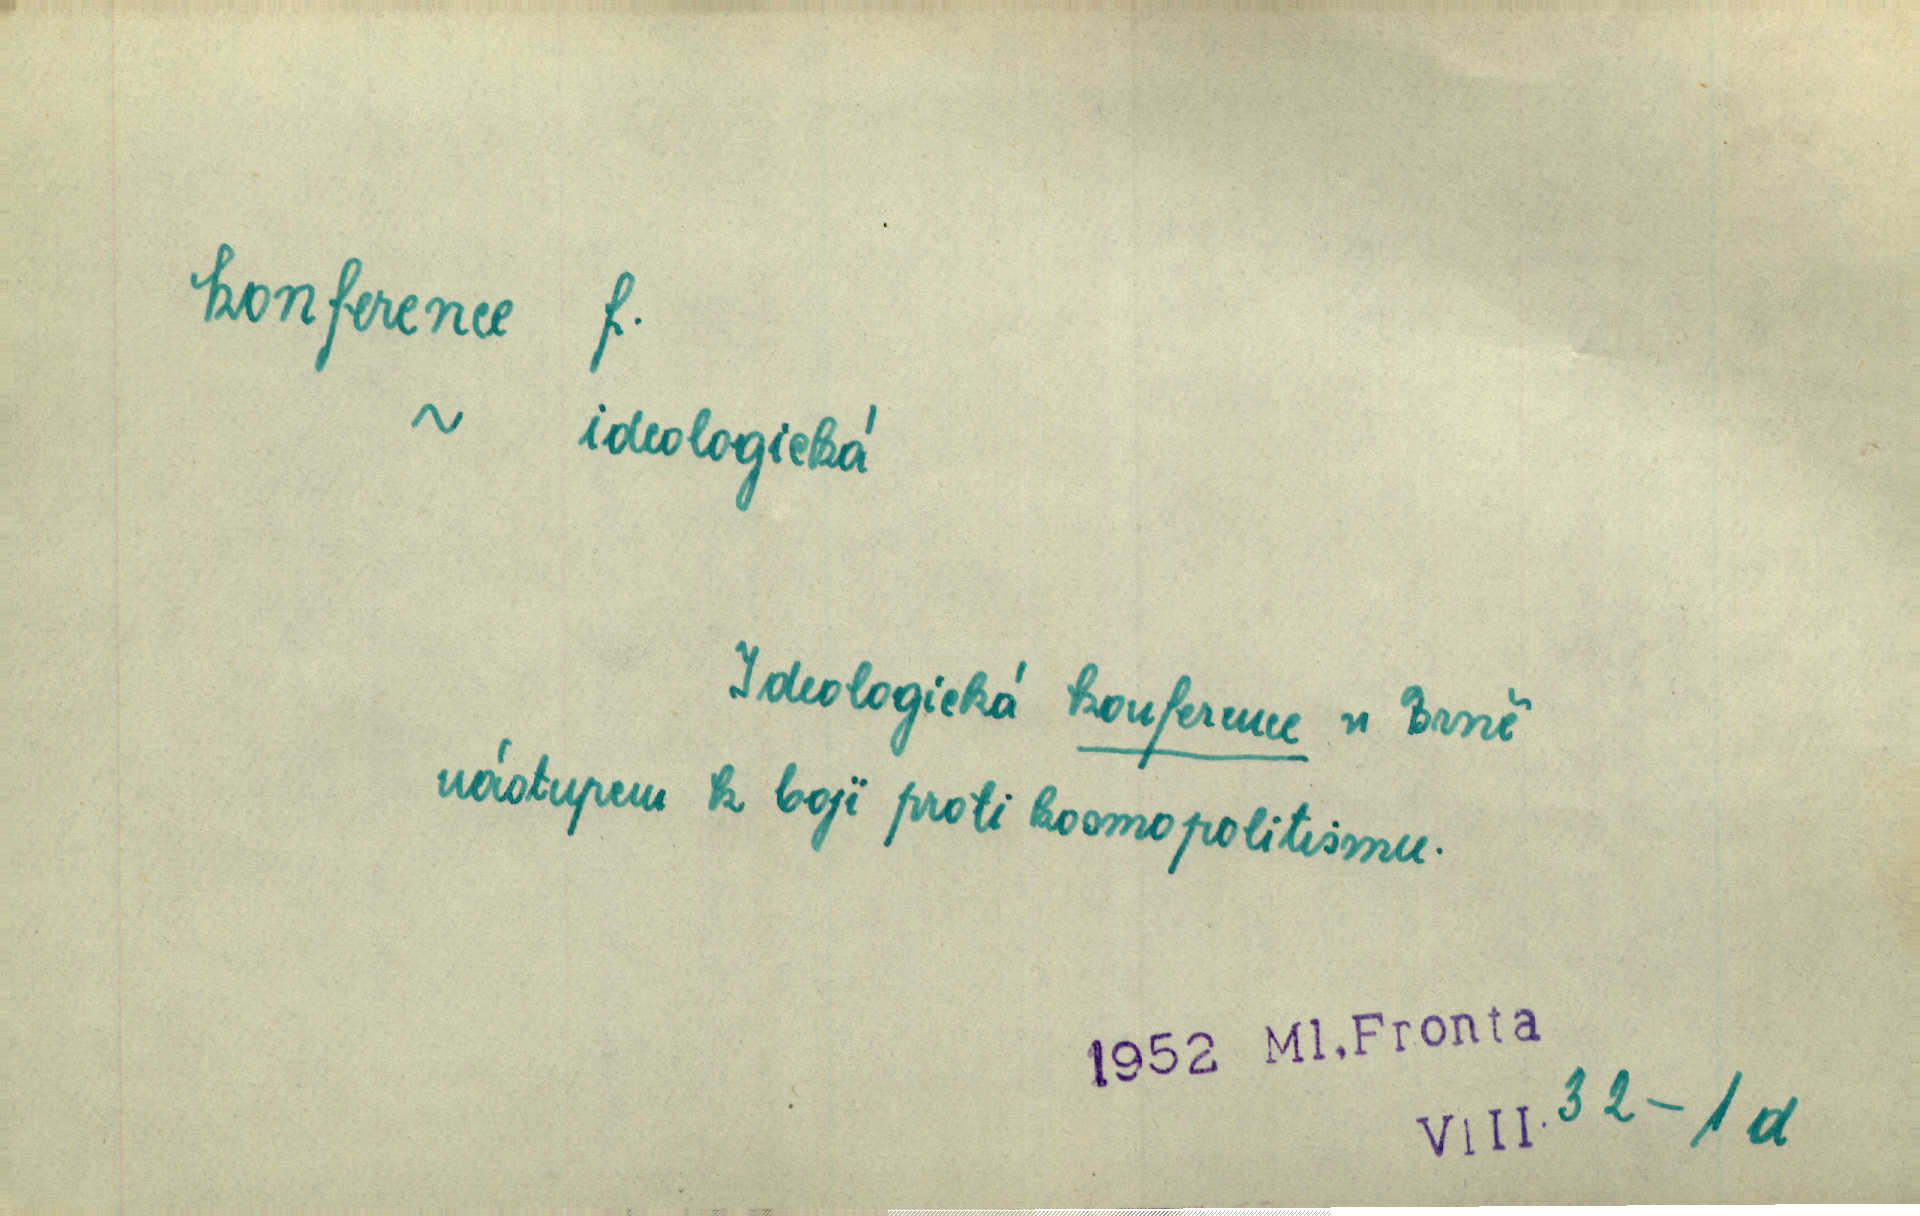 konference f.
~ ideologická
Ideologická konference v Brně
nástupem k boji proti kosmopolitismu.
1952 Ml.Fronta
VIII.32-1d